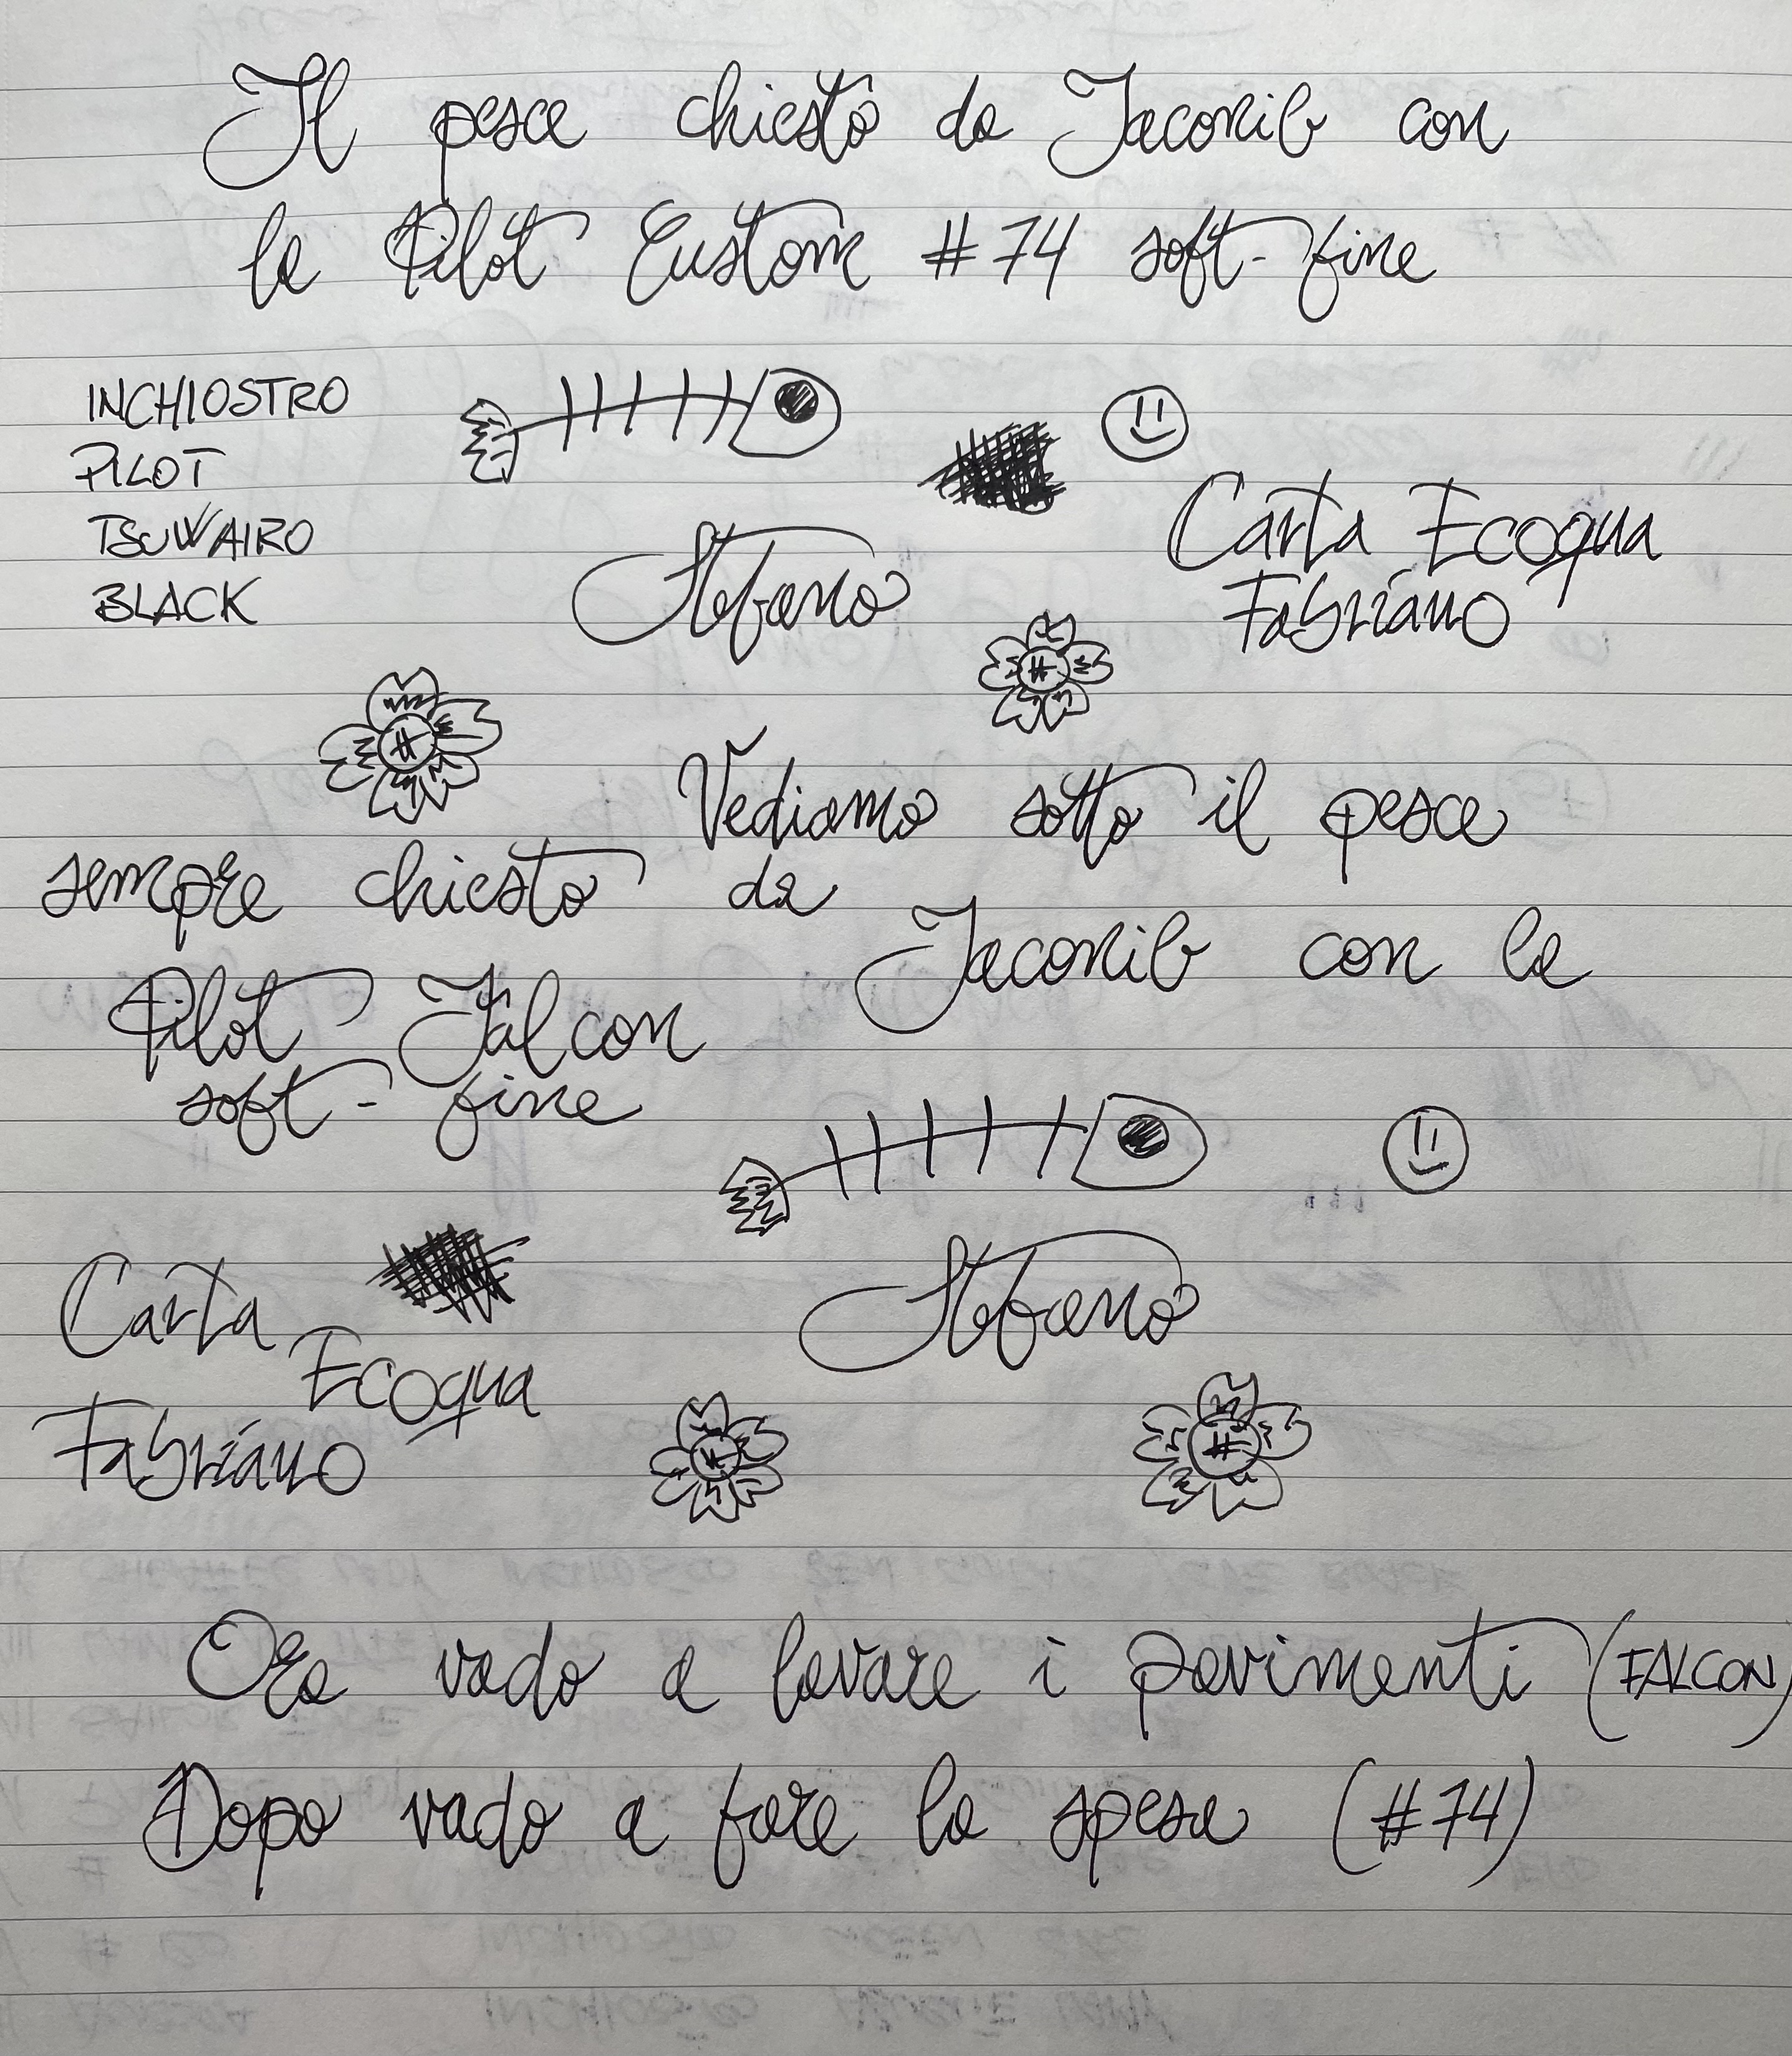 Il pesce chiesto da Jaconib con
la Pilot Custom #74 soft-fine
INCHIOSTRO
PILOT
TSUWAIRO
BLACK
Carta Ecoqua
Fabriano
Stefano
Vediamo sotto il pesce
sempre chiesto da
Jaconib con la
Pilot Falcon
soft-fine
Carta
Ecoqua
Fabriano
Stefano
Ora vado a lavare i pavimenti (FALCON)
Dopo vado a fare la spesa (#74)